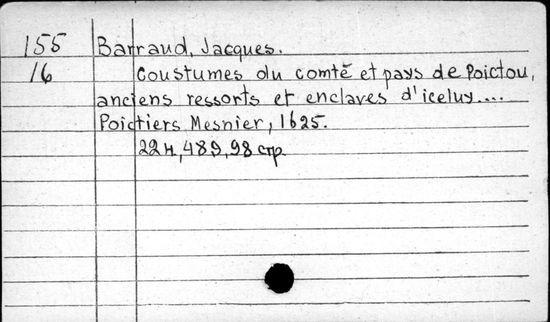 155 Barraud, Jacques.
16 Coustumes du comté et pays de Poictou,
anciens ressorts et enclaves d'iceluy....
Poictiers Mesnier, 1625.
22н, 489, 98 стр.